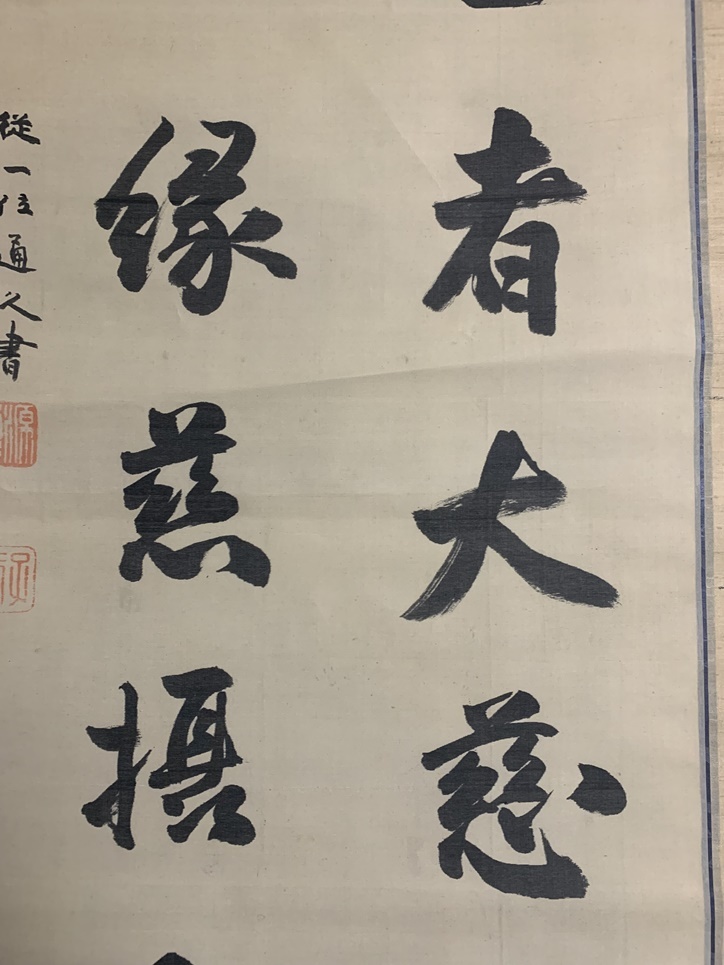 者大慈
縁慈摂
従一位通久書